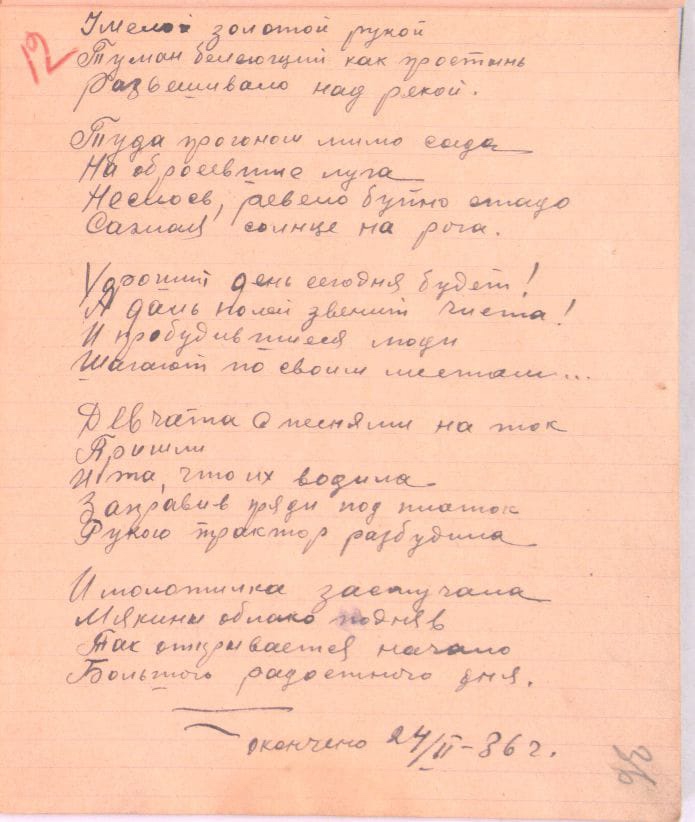 12
Умелой золотой рукой
Туман белеющий как простынь
Развешивало над рекой.
Туда прогоном мимо сада
На обросевшие луга
Неслось, ревело буйно стадо
Сажая солнце на рога.
Хороший день сегодня будет!
А даль полей звенит чиста!
И пробудившиеся люди
Шагают по своим местам...
Девчата с песнями на ток
Пришли
И та, что их водила
Заправив пряди под платок
Рукою трактор разбудила
И молотилка застучала
Мякины облако подняв
Так открывается начало
Большого радостного дня.
окончено 24/II-36 г.
36